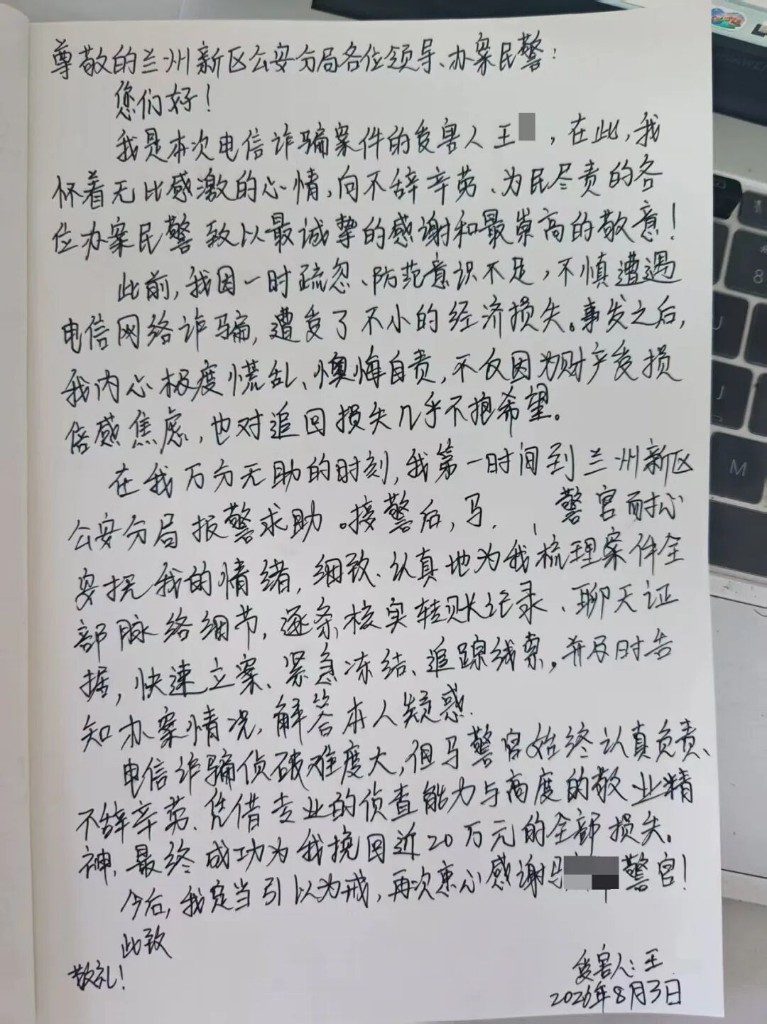 尊敬的兰州新区公安分局各位领导、办案民警：
您们好！
我是本次电信诈骗案件的受害人王，在此，我
怀着无比感激的心情，向不辞辛劳、为民尽责的各
位办案民警致以最诚挚的感谢和最崇高的敬意！
此前，我因一时疏忽、防范意识不足，不慎遭遇
电信网络诈骗，遭受了不小的经济损失。事发之后，
我内心极度慌乱、懊悔自责，不仅因为财产受损
倍感焦虑，也对追回损失几乎不抱希望。
在我万分无助的时刻，我第一时间到兰州新区
公安分局报警求助。接警后，马 警官耐心
安抚我的情绪，细致、认真地为我梳理案件全
部脉络细节，逐条核实转账记录、聊天证
据，快速立案、紧急冻结、追踪线索，并及时告
知办案情况，解答本人疑惑.
电信诈骗侦破难度大，但马警官始终认真负责、
不辞辛劳、凭借专业的侦查能力与高度的敬业精
神，最终成功为我挽回近20万元的全部损失。
今后，我定当引以为戒，再次衷心感谢马 警官！
此致
敬礼！
受害人：王
2026年8月3日